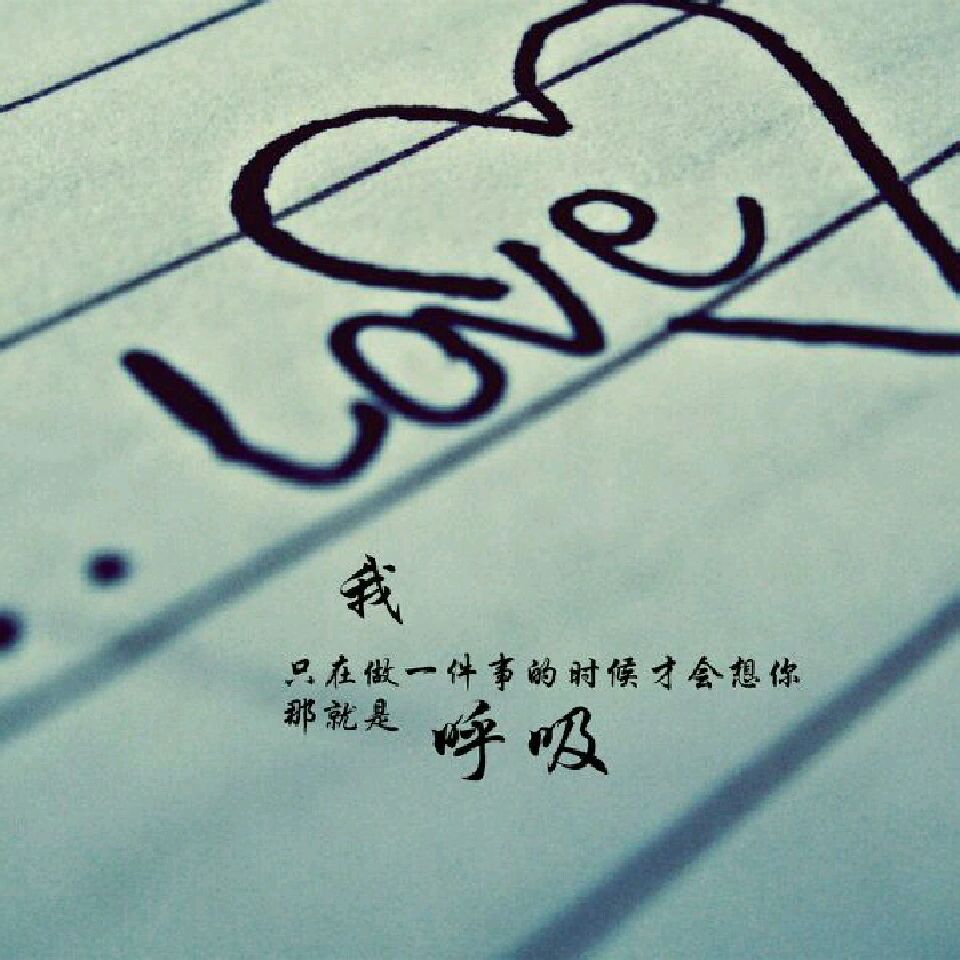 Love
我
只在做一件事的时候才会想你
那就是 呼吸